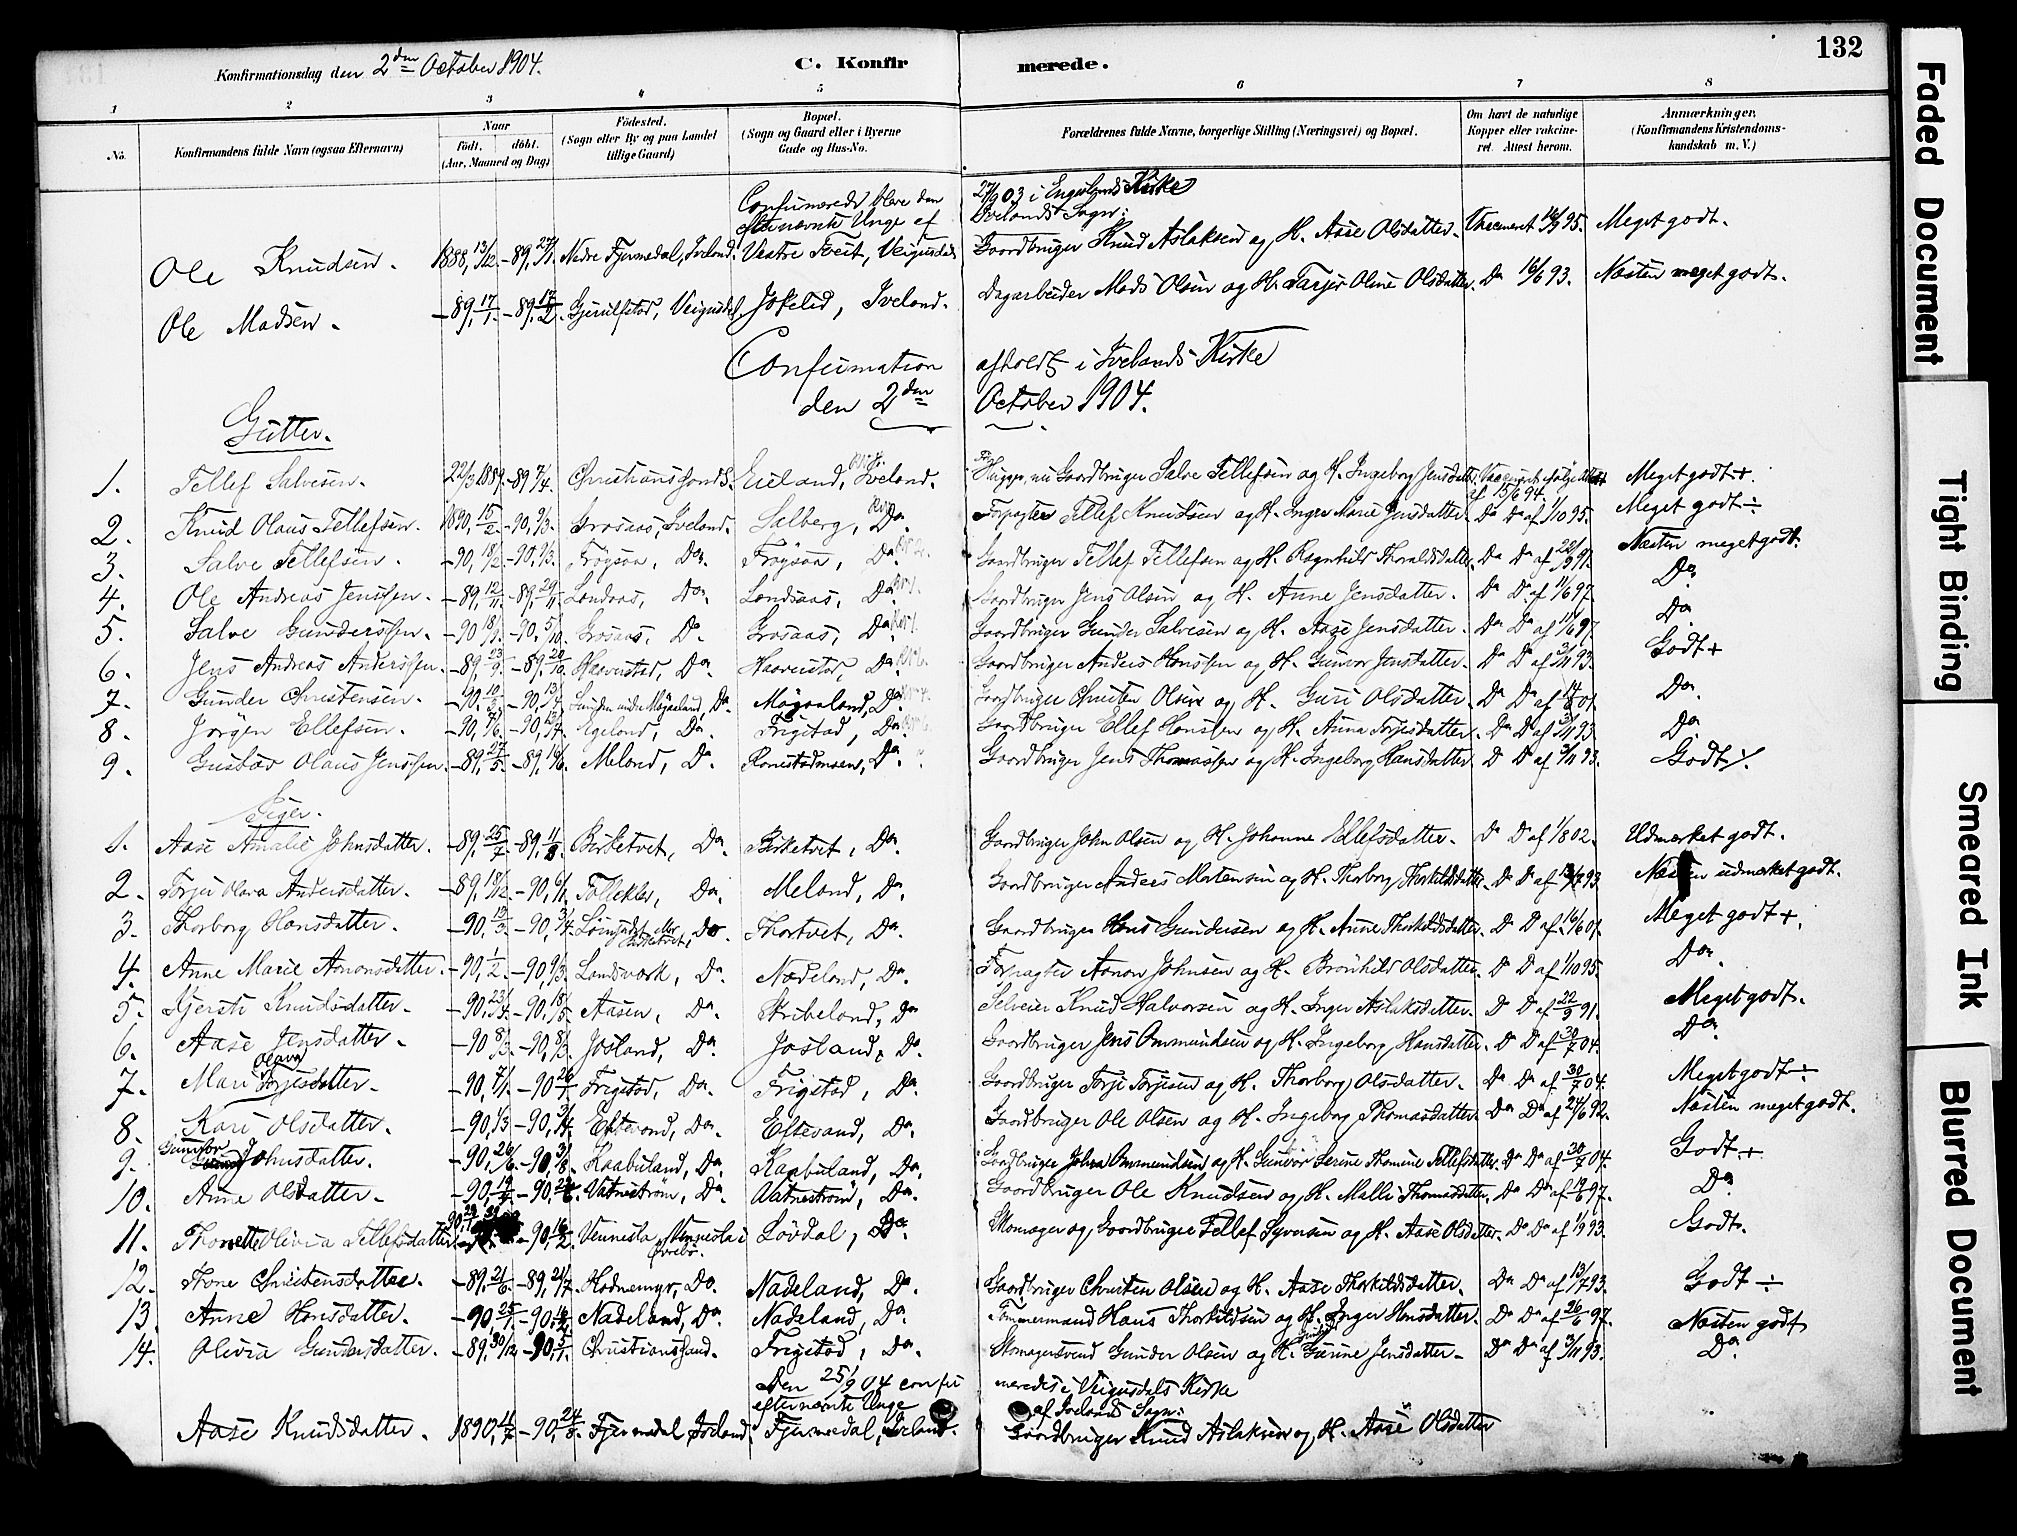 Konfirmationsdag den 2den October 1904. C. Konfirmerede. 132
1 2 3 4 5 6 7 8
No. Konfirmandens fulde Navn (ogsaa Efternavn) Naar født. døbt. (Aar, Maaned og Dag) Fødested. (Sogn eller By og paa Landet tillige Gaard) Bopæl. (Sogn og Gaard eller i Byerne Gade og Hus-No. Forældrenes fulde Navne, borgerlige Stilling (Næringsvei) og Bopæl. Om havt de naturlige Kopper eller vakcineret. Attest herom. Anmærkninger. (Konfirmandens Kristendomskundskab m. V.)
27/9 03 i Kirke
Ivelands Sogn:
Ole Knudsen. 1888, 13/12. Iveland. Vestre Tveit, Gaardbruger Knud Aslaksen og H. Aase Olsdatter. Meget godt.
Ole Madsen. -89, 17/1. -89, 17/2. Jokelid, Iveland. Dagarbeider Mads Olsen og H. Tarjer Oline Olsdatter. Da 16/6 93. Næsten meget godt.
Confirmation afholdt i Ivelands Kirke
den 2den October 1904.
Gutter.
1. Tellef Salvesen. 22/3 1889. -89 7/4. Christianssand. Iveland. nu Gaardbruger Salve Tellefsen og H. Ingeborg Jensdatter. 15/6 94. Meget godt +.
2. Knud Olaus Tellefsen. 1890, 15/2 -90, 9/3. Grosaas, Iveland. Salberg, Da. Forpagter Tellef Knudsen og H. Inger Marie Jensdatter. Da Da af 1/10 95. Meget godt ÷
3. Salve Tellefsen. -90, 18/2. -90, 9/3. Frøysaa, Da. Frøysaa, Da. Gaardbruger Tellef Tellefsen og H. Ragnhild Thoraldsdatter. Da Da af 22/9 91. Næsten meget godt.
4. Ole Andreas Jenssen. -89, 12/11. -89, 29/11. Landaas, Da. Landsaas, Da. Gaardbruger Jens Olsen og H. Anne Jensdatter. Da Da af 11/6 97. Da
5. Salve Gunderssen. -90 18/9. -90, 5/10. Grosaas, Da. Grosaas, Da. Gaardbruger Gunder Salvesen og H. Aase Jensdatter. Da Da af 11/6 97. Da
6. Jens Andreas Anderssen. -89, 23/9. -89, 20/10. Haavestad, Da. Haavestad, Da. Gaardbruger Anders Hanssen og H. Gunvor Jensdatter. Da Da af 3/11 93. Godt +
7. Gunder Christensen. Møgaaland, Da. Møgaaland, Da. Gaardbruger Christen Olsen og H. Guri Olsdatter. Da Da af 01. Da.
8. Jørgen Ellefsen. Ageland, Da. Frigstad, Da. Gaardbruger Ellef Hanssen og H. Anna Torjesdatter. Da Da af 3/11 93. Da
9. Gustav Olaus Jenssen. -89, 27/5. -89, 16/6. Meland, Da. Da. Gaardbruger Jens Thomassen og H. Ingeborg Hansdatter. Da Da af 3/11 93. Godt ÷.
Piger.
1. Aase Amalie Johnsdatter. -89, 25/7. -89, 11/8. Birketvet, Da. Birketvet, Da. Gaardbruger John Olsen og H. Johanne Ellefsdatter. Da Da af 1/8 02. Udmærket godt.
2. Torjer Olava Andersdatter. -89, 18/12. -90, 6/1. Tolleklev, Da. Meland, Da. Gaardbruger Anders Mortensen og H. Thorborg Thorkildsdatter. Da Da af 13/7 93 Næsten udmærket godt.
3. Thorborg Hansdatter. -90, 3/4. Da. Thortvet, Da. Gaardbruger Hans Gundersen og H. Anne Thorkildsdatter. Da Da af 16/6 01. Meget godt +.
4. Anne Marie Aanonsdatter. -90, 1/2. -90, 9/3. Landsverk, Da. Nadeland, Da. Forpagter Aanon Johnsen og H. Brønhild Olsdatter. Da Da af 1/10 95. Da.
5. Kjersti Knudsdatter. -90, 18/5. Aasen, Da. Skribeland, Da Selveier Knud Halvorsen og H. Inger Aslaksdatter. Da Da af 22/9 91. Meget godt.
6. Aase Jensdatter. -90 8/3. -90, 8/3. Josland, Da. Josland, Da. Gaardbruger Jens Ommundsen og H. Ingeborg Hansdatter. Da Da af 30/7 04. Da
7. Mari Olava Torjesdatter. -90, 7/1. -90 26/1. Frigstad, Da. Frigstad, Da. Gaardbruger Torje Torjesen og H. Thorborg Olsdatter. Da Da af 30/7 04. Meget godt ÷
8. Kari Olsdatter. -90, 1/3. Eftevand, Da. Eftevand, Da. Gaardbruger Ole Olsen og H. Ingeborg Thomasdatter. Da Da af 24/6 92. Næsten meget godt.
9. Gunvor Johnsdatter. -90, 26/6. -90, 3/8. Kaabuland, Da. Kaabuland, Da. Gaardbruger John Ommundsen og H. Gunvor Serine Thomine Tellefsdatter. Da Da af 30/7 04. Godt +
10. Anne Olsdatter. Vatnestrøm, Da. Vatnestrøm, Da. Gaardbruger Ole Knudsen og H. Malli Thomasdatter. Da Da af 97. Da
11. Thonette Olivia Tellefsdatter. -90, 16/2. Vennesla, Vennesla i Øvrebø. Løvdal, Da. Skomager og Gaardbruger Tellef Syversen og H. Aase Olsdatter. Da Da af 1/9 93. Godt.
12. Tone Christensdatter. -89, 21/6. -89, 21/7. Hodnemyr, Da. Nadeland, Da. Gaardbruger Christen Olsen og H. Aase Thorkildsdatter. Da Da af 13/7 93. Godt ÷
13. Anne Hansdatter. -90, 25/1. -90, 16/2. Nadeland, Da. Nadeland, Da. Tømmermand Hans Thorkildsen og H. Inger Hansdatter. Da Da af 26/6 97. Næsten godt
14. Olivia Gundersdatter. -89, 30/12. Christianssand. Frigstad, Da. Skomagersvend Gunder Olsen og H. Gurine Jensdatter. Da Da af 3/11 93. Da.
Den 25/9 04 confirmeredes i Veigusdals Kirke
efternævnte Unge af Ivelands Sogn:
Aase Knudsdatter. 1890, 11/7 -90, 24/8. Fjermedal, Iveland. Fjermedal, Iveland. Gaardbruger Knud Aslaksen og H. Aase Olsdatter
Faded Document
Tight Binding
Smeared Ink
Blurred Document